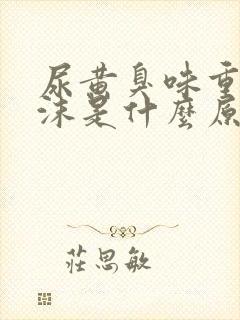 尿黄臭味重
沫是什麼原
莊思敏